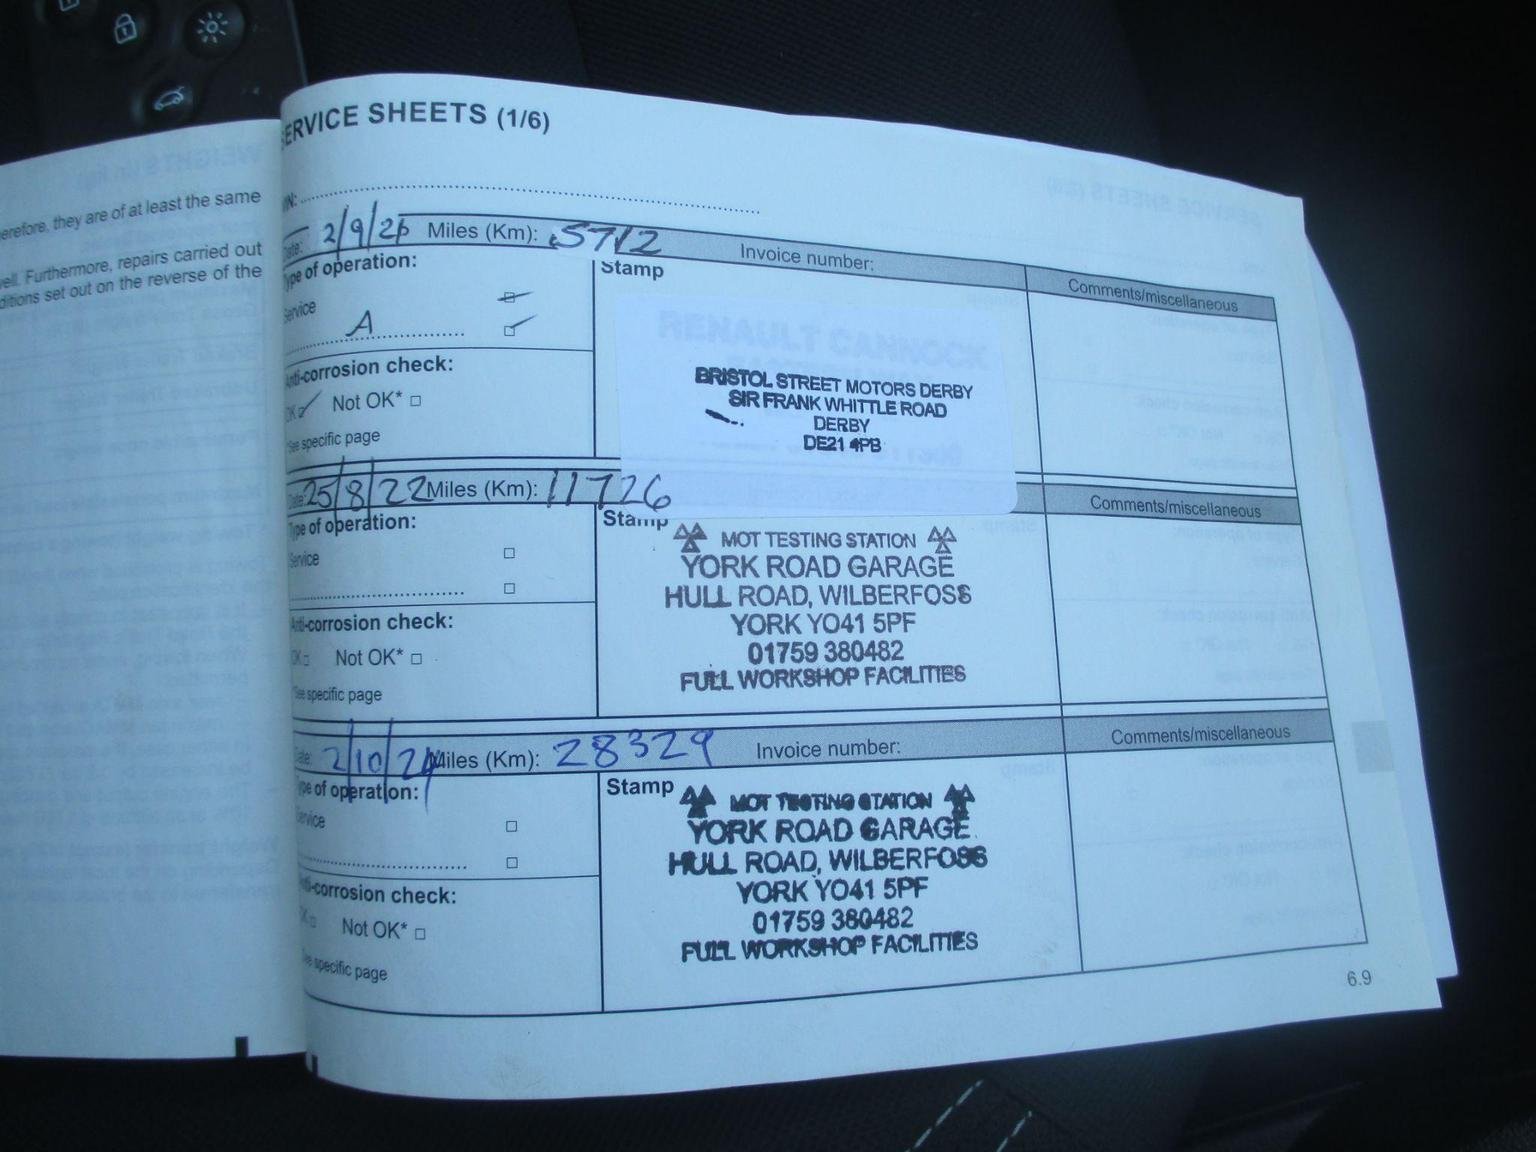 SERVICE SHEETS (1/6)
erefore, they are of at least the same
well. Furthermore, repairs carried out
ditions set out on the reverse of the
VIN:
Date: 2/9/2 Miles (Km): 5712 Invoice number: Comments/miscellaneous
Type of operation: Stamp
Service
A
Anti-corrosion check:
OK Not OK*
*See specific page
RENAULT CANNOCK
BRISTOL STREET MOTORS DERBY
SIR FRANK WHITTLE ROAD
DERBY
DE21 4PB
Date: 25/8/22 Miles (Km): 11726 Comments/miscellaneous
Type of operation: Stamp
Service
Anti-corrosion check:
OK Not OK*
*See specific page
MOT TESTING STATION
YORK ROAD GARAGE
HULL ROAD, WILBERFOSS
YORK YO41 5PF
01759 380482
FULL WORKSHOP FACILITIES
Date: 2/10/24 Miles (Km): 28329 Invoice number: Comments/miscellaneous
Type of operation: Stamp
Service
Anti-corrosion check:
OK Not OK*
*See specific page
MOT TESTING STATION
YORK ROAD GARAGE
HULL ROAD, WILBERFOSS
YORK YO41 5PF
01759 380482
FULL WORKSHOP FACILITIES
6.9